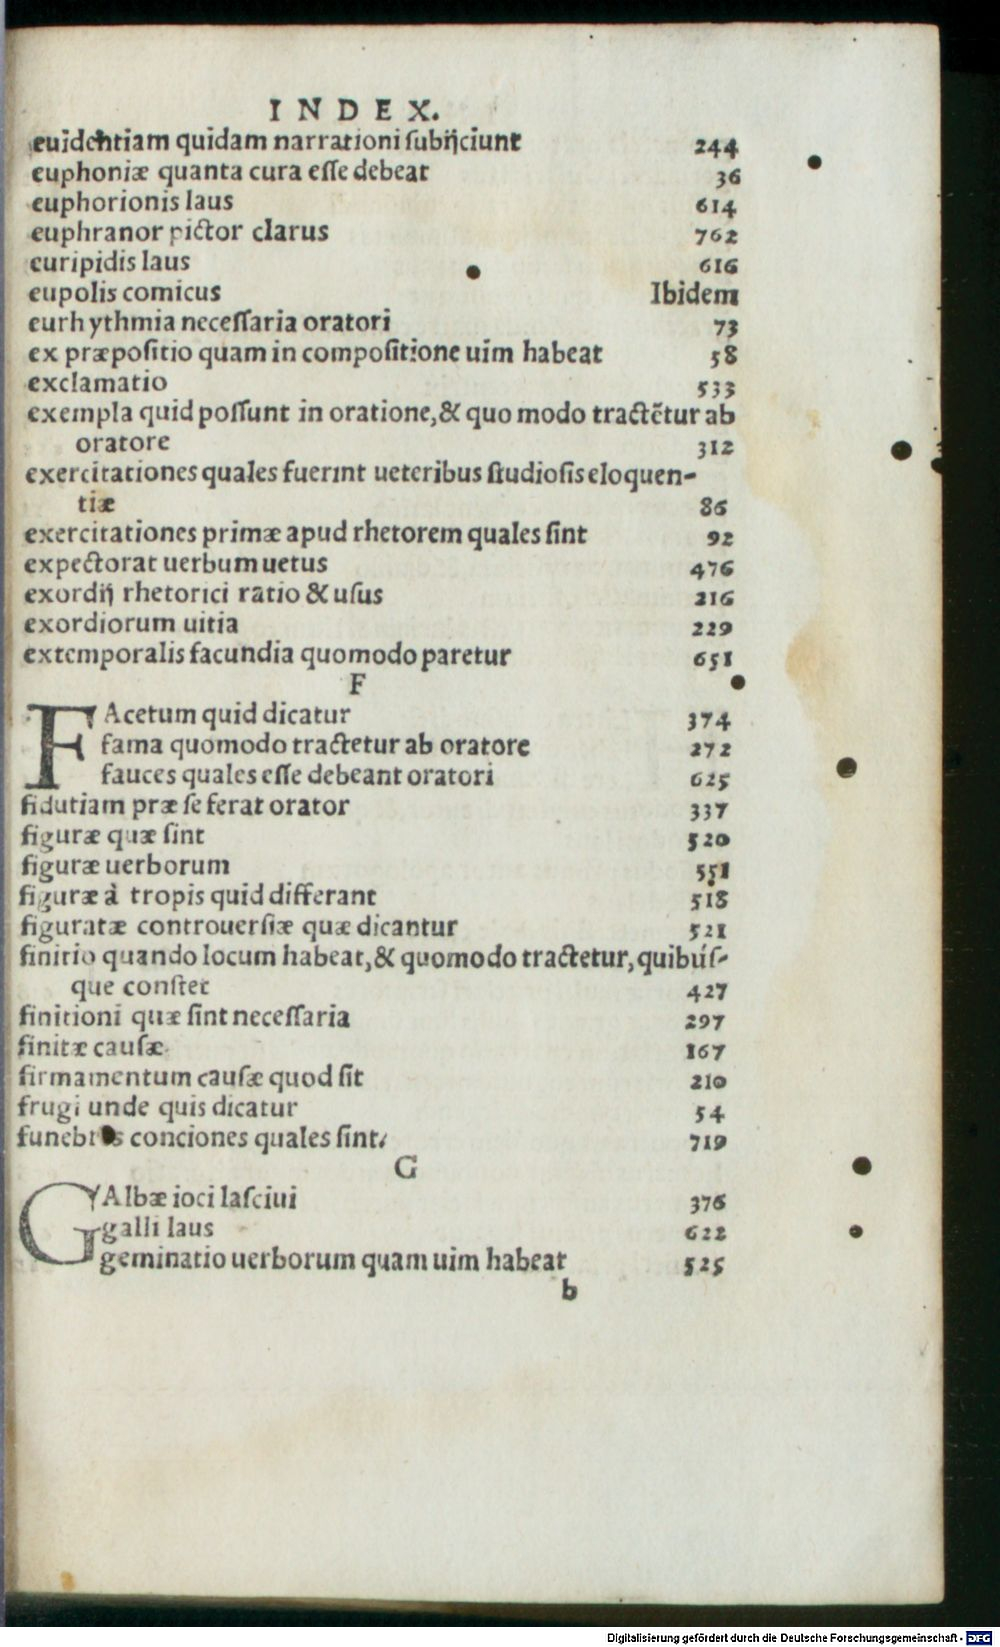 INDEX.
euidentiam quidam narrationi ſubijciunt 244
euphoniæ quanta cura eſſe debeat 36
euphorionis laus 614
euphranor pictor clarus 762
euripidis laus 616
eupolis comicus Ibidem
eurhythmia neceſſaria oratori 73
ex præpoſitio quam in compoſitione uim habeat 58
exclamatio 533
exempla quid poſſunt in oratione,& quo modo tractẽtur ab
oratore 312
exercitationes quales fuerint ueteribus ſtudioſis eloquen-
tiæ 86
exercitationes primæ apud rhetorem quales ſint 92
expectorat uerbum uetus 476
exordij rhetorici ratio & uſus 216
exordiorum uitia 229
extemporalis facundia quomodo paretur 651
F
FAcetum quid dicatur 374
fama quomodo tractetur ab oratore 272
fauces quales eſſe debeant oratori 625
fidutiam præ ſe ferat orator 337
figuræ quæ ſint 520
figuræ uerborum 551
figuræ à tropis quid differant 518
figuratæ controuerſiæ quæ dicantur 521
finitio quando locum habeat,& quomodo tractetur, quibuſ-
que conſtet 427
finitioni quæ ſint neceſſaria 297
finitæ cauſæ 167
firmamentum cauſæ quod ſit 210
frugi unde quis dicatur 54
funebres conciones quales ſint. 719
G
GAlbæ ioci laſciui 376
galli laus 622
geminatio uerborum quam uim habeat 525
b
Digitalisierung gefördert durch die Deutsche Forschungsgemeinschaft - DFG